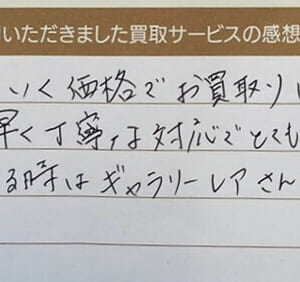 いただきました買取サービスの感想
いく価格でお買取り
早く丁寧な対応でとても
る時はギャラリーレアさん